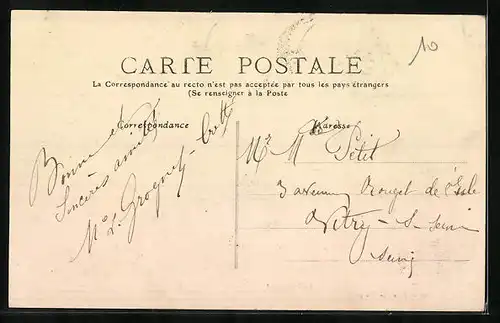 10
CARTE POSTALE
La Correspondance au recto n'est pas acceptée par tous les pays étrangers
(Se renseigner à la Poste
Correspondance
Adresse
Bonne et
Sincères amitiés
Mr M Petit
3 avenue Rouget de l'Isle
Vitry-s-Seine
Seine